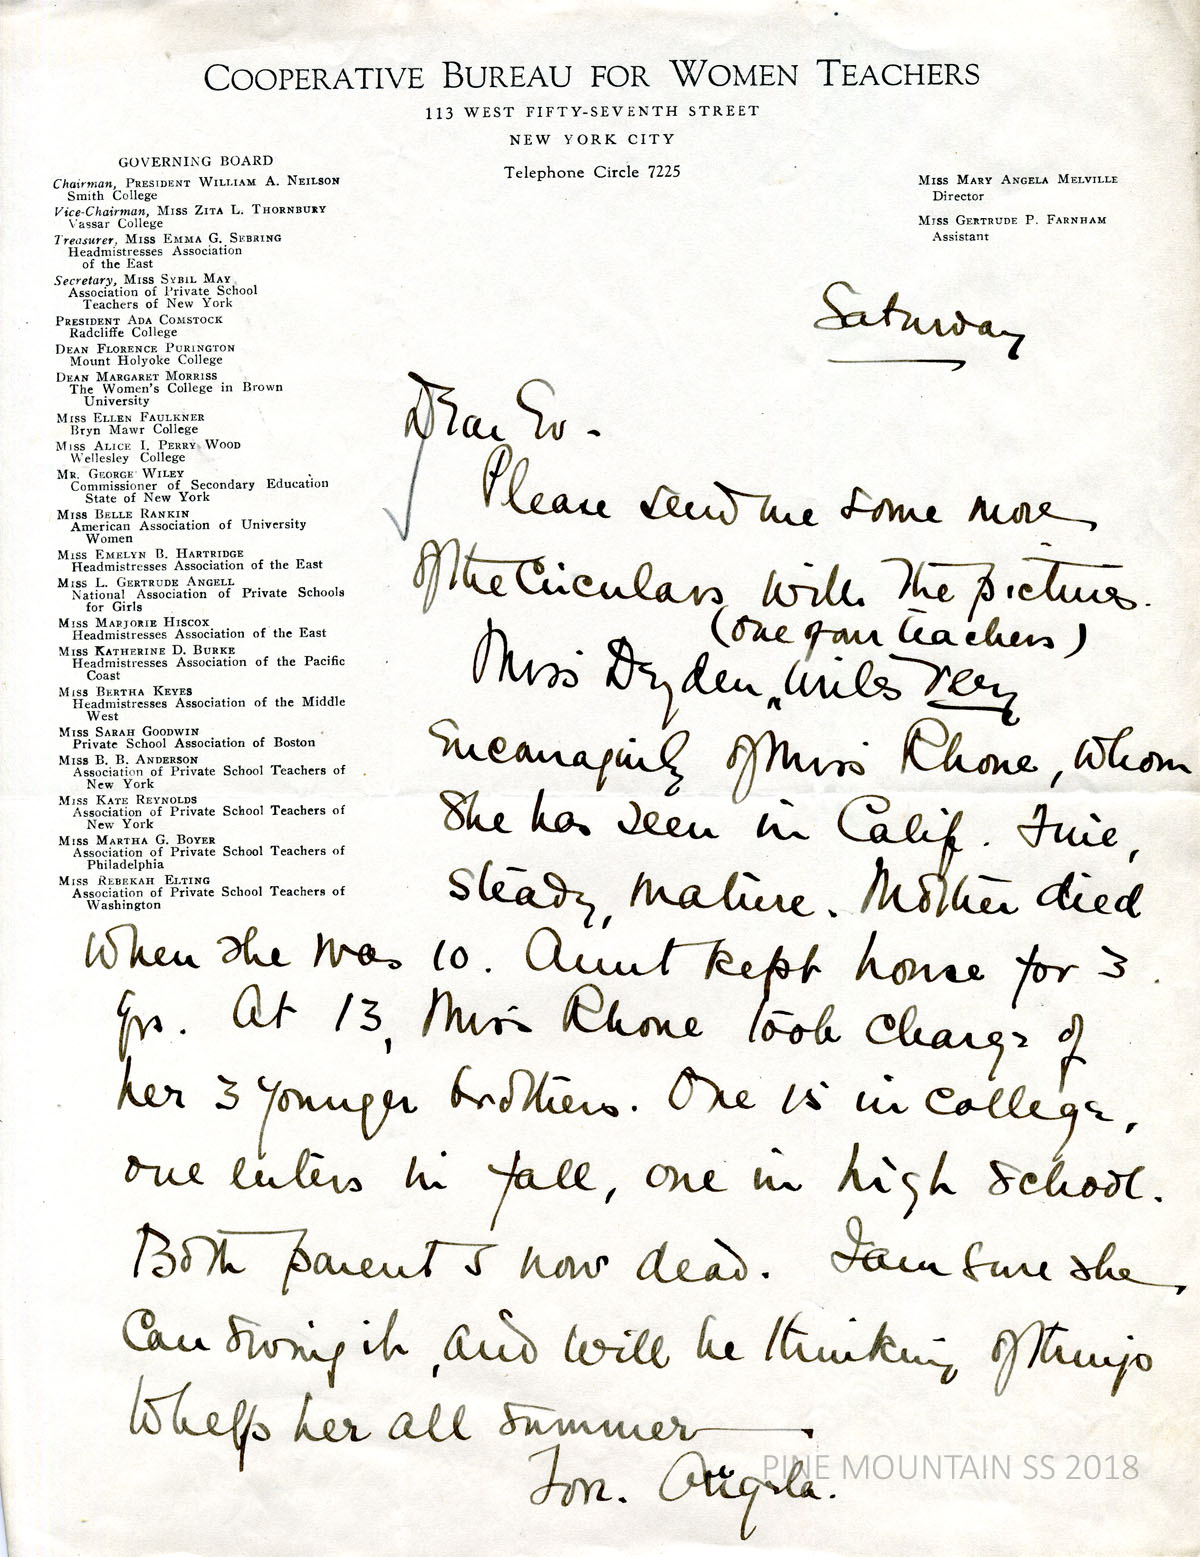 COOPERATIVE BUREAU FOR WOMEN TEACHERS
113 WEST FIFTY-SEVENTH STREET
NEW YORK CITY
Telephone Circle 7225
GOVERNING BOARD
Chairman, PRESIDENT WILLIAM A. NEILSON
Smith College
Vice-Chairman, MISS ZITA L. THORNBURY
Vassar College
Treasurer, MISS EMMA G. SEBRING
Headmistresses Association
of the East
Secretary, MISS SYBIL MAY
Association of Private School
Teachers of New York
PRESIDENT ADA COMSTOCK
Radcliffe College
DEAN FLORENCE PURINGTON
Mount Holyoke College
DEAN MARGARET MORRISS
The Women's College in Brown
University
MISS ELLEN FAULKNER
Bryn Mawr College
MISS ALICE I. PERRY WOOD
Wellesley College
MR. GEORGE WILEY
Commissioner of Secondary Education
State of New York
MISS BELLE RANKIN
American Association of University
Women
MISS EMELYN B. HARTRIDGE
Headmistresses Association of the East
MISS L. GERTRUDE ANGELL
National Association of Private Schools
for Girls
MISS MARJORIE HISCOX
Headmistresses Association of the East
MISS KATHERINE D. BURKE
Headmistresses Association of the Pacific
Coast
MISS BERTHA KEYES
Headmistresses Association of the Middle
West
MISS SARAH GOODWIN
Private School Association of Boston
MISS B. B. ANDERSON
Association of Private School Teachers of
New York
MISS KATE REYNOLDS
Association of Private School Teachers of
New York
MISS MARTHA G. BOYER
Association of Private School Teachers of
Philadelphia
MISS REBEKAH ELTING
Association of Private School Teachers of
Washington
MISS MARY ANGELA MELVILLE
Director
MISS GERTRUDE P. FARNHAM
Assistant
Saturday
Dear Ev -
Please send me some more
of the Circulars with the pictures.
(one of our teachers)
Miss Dryden, writes very
encouragingly of Miss Rhone, whom
she has seen in Calif. Fine,
steady, mature. Mother died
when she was 10. Aunt kept house for 3
yrs. At 13, Miss Rhone took charge of
her 3 younger brothers. One is in college,
one enters in fall, one in high school.
Both parents now dead. I am sure she
can swing it, and will be thinking of things
to help her all summer
Angela.
PINE MOUNTAIN SS 2018